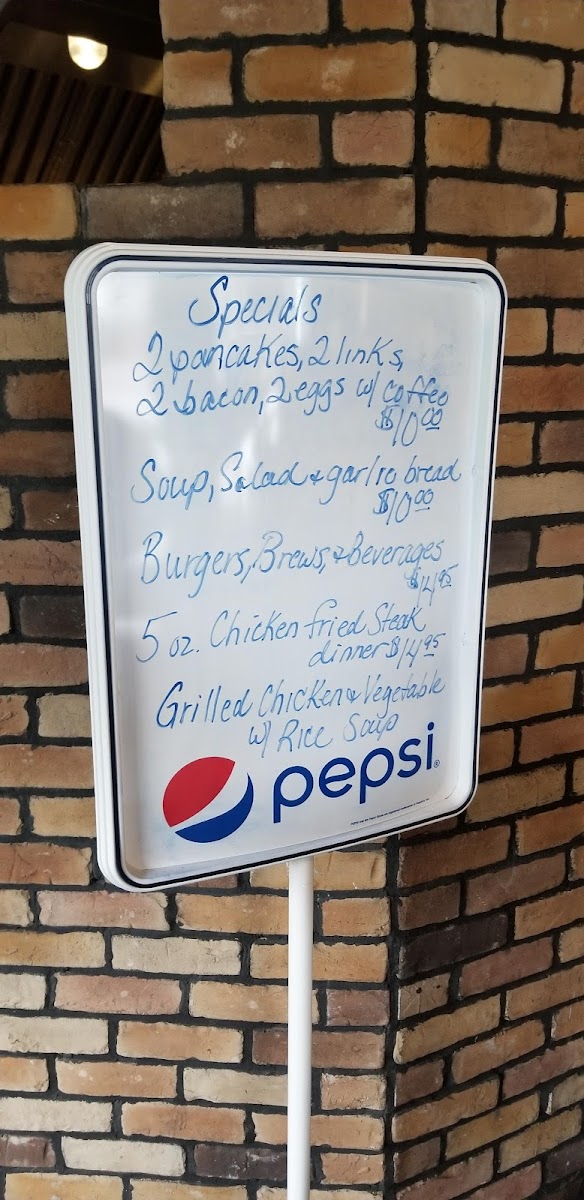 Specials
2 pancakes, 2 links,
2 bacon, 2 eggs w/ coffee
$10.00
Soup, Salad & garlic bread
$10.00
Burgers, Brews, & Beverages
$14.95
5 oz. Chicken fried Steak
dinner $14.95
Grilled Chicken & Vegetable
w/ Rice Soup
pepsi®